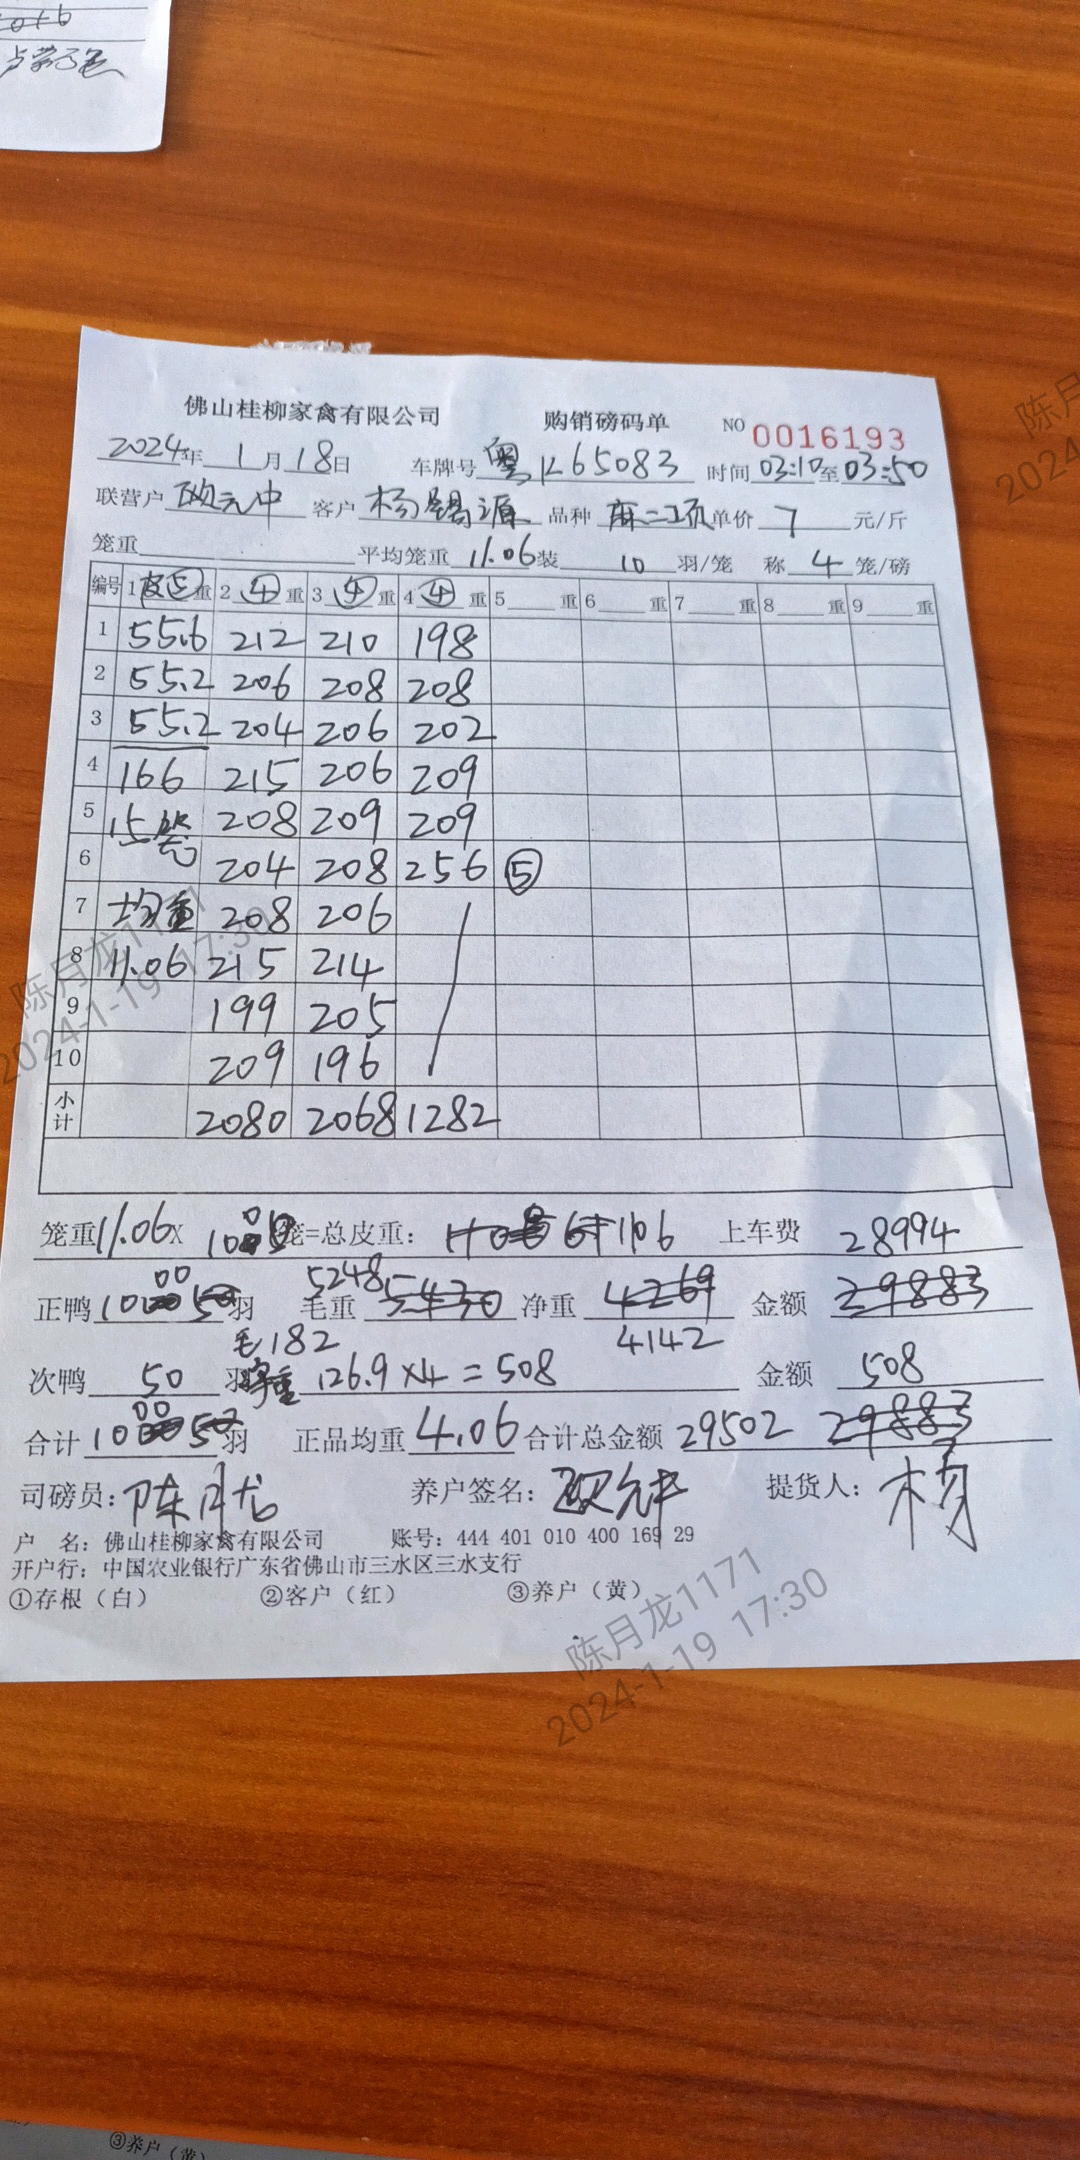 佛山桂柳家禽有限公司 购销磅码单 NO 0016193
2024年 1月18日 车牌号 粤 1265083 时间 03:10至03:50
联营户 欧元中 客户 杨锡源 品种 麻二项 单价 7 元/斤
笼重 平均笼重 11.06 装 10 羽/笼 称 4 笼/磅
编号 1 皮⑤ 重 2 ④ 重 3 ④ 重 4 ④ 重 5 重 6 重 7 重 8 重 9 重
1 55.6 212 210 198
2 55.2 206 208 208
3 55.2 204 206 202
4 166 215 206 209
5 15笼 208 209 209
6 204 208 256 ⑤
7 均重 208 206
8 11.06 215 214
9 199 205
10 209 196
小计 2080 2068 1282
笼重11.06X 100 笼=总皮重: 1106 上车费 28994
正鸭 1000 羽 毛重 5248 5430 净重 4269 金额 29883
毛182 4142
次鸭 50 羽 净重 126.9×4=508 金额 508
合计 1000 羽 正品均重 4.06 合计总金额 29502 29883
司磅员: 陈月龙 养户签名: 提货人: 杨
户 名: 佛山桂柳家禽有限公司 账号: 444 401 010 400 169 29
开户行: 中国农业银行广东省佛山市三水区三水支行
①存根(白) ②客户(红) ③养户(黄)
陈月龙1171
2024-1-19 17:30
陈月龙1171
2024-1-19 17:30
陈月
2024-1
③养户(黄)